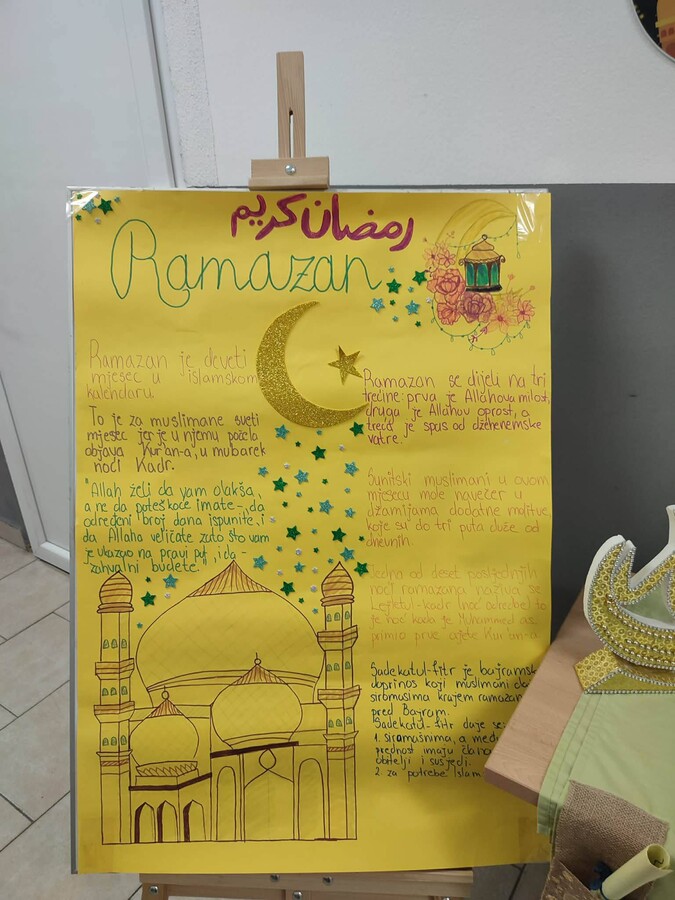 رمضان كريم
Ramazan
Ramazan je deveti
mjesec u islamskom
kalendaru
To je za muslimane sveti
mjesec jer je u njemu počela
objava Kur'an-a, u mubarek
noći Kadr.
"Allah želi da vam olakša,
a ne da poteškoće imate-, da
određeni broj dana ispunite, i
da Allaha veličate zato što vam
je ukazao na pravi put, i da -
zahvalni budete."
Ramazan se dijeli na tri
trećine: prva je Allahova milost,
druga je Allahov oprost, a
treća je spas od džehenemske
vatre.
Sunitski muslimani u ovom
mjesecu mole navečer u
džamijama dodatne molitve,
koje su do tri puta duže od
dnevnih.
Jedna od deset posljednjih
noći ramazana naziva se
Lejletul-kadr (noć odredbe) to
je noć kada je Muhammed a.s
primio prve ajete Kur'an-a
Sadekatul-fitr je bajramsk
doprinos koji muslimani da
siromasima krajem ramazan
pred Bajram.
Sadekatul-fitr daje se:
1. siromašnima, a među
prednost imaju člano
obitelji i susjedi.
2. za potrebe Islam